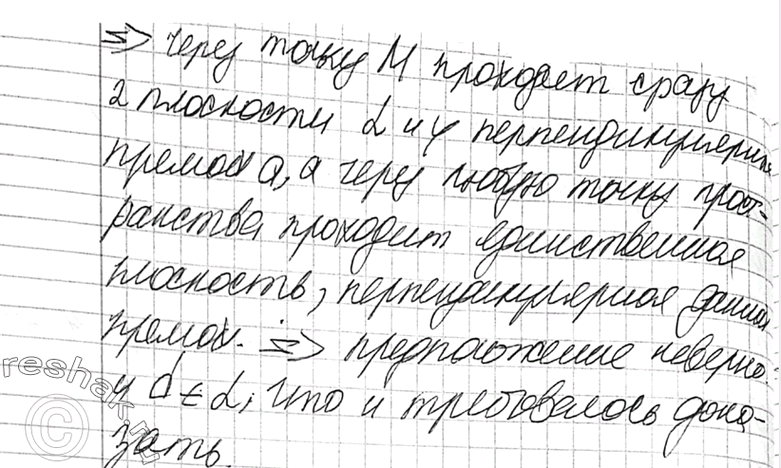 => через точку М проходит сразу
2 плоскости α и γ перпендикулярные
прямой а, а через любую точку прост-
ранства проходит единственная
плоскость, перпендикулярная данной
прямой. => предположение неверно
и d ∈ α, что и требовалось дока-
зать.
reshak
©